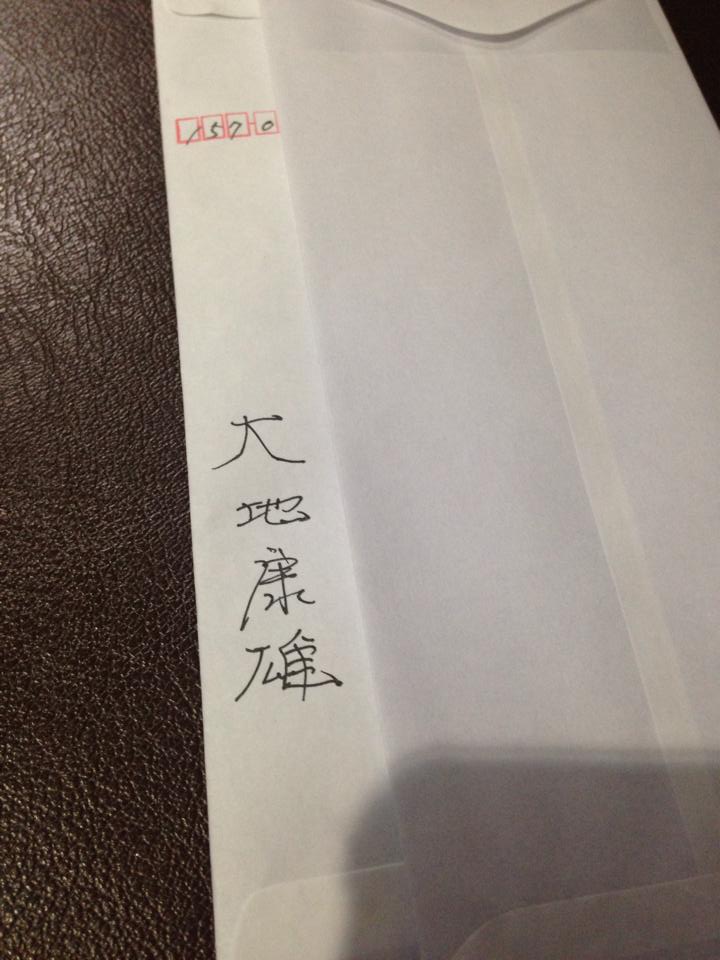 157-0
大地康雄